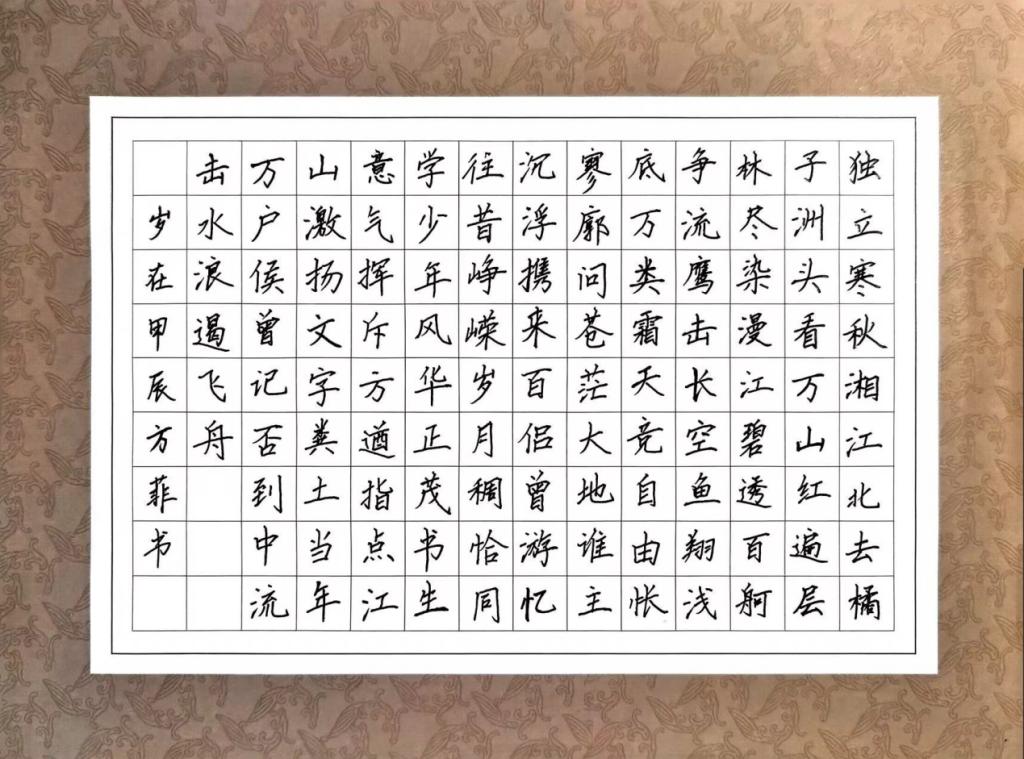 独立寒秋湘江北去橘
子洲头看万山红遍层
林尽染漫江碧透百舸
争流鹰击长空鱼翔浅
底万类霜天竞自由怅
寥廓问苍茫大地谁主
沉浮携来百侣曾游忆
往昔峥嵘岁月稠恰同
学少年风华正茂书生
意气挥斥方遒指点江
山激扬文字粪土当年
万户侯曾记否到中流
击水浪遏飞舟
岁在甲辰方菲书